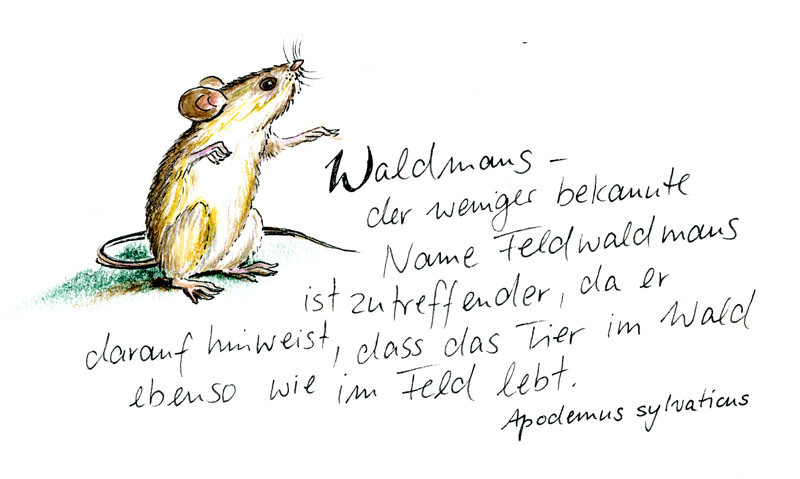 Waldmaus –
der weniger bekannte
Name Feldwaldmaus
ist zutreffender, da er
darauf hinweist, dass das Tier im Wald
ebenso wie im Feld lebt.
Apodemus sylvaticus